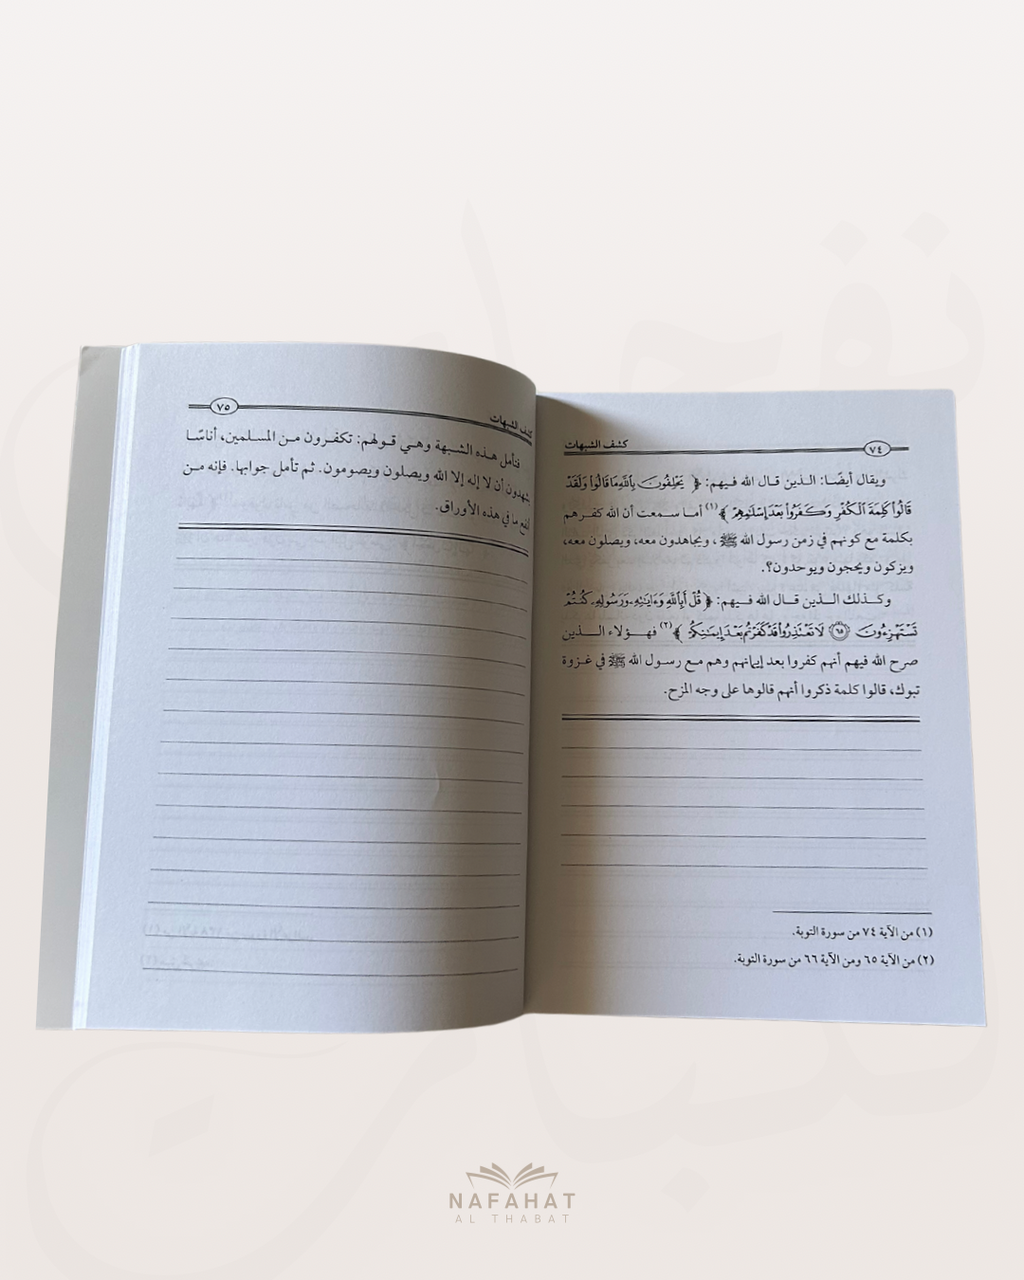 ٧٤
كشف الشبهات
ويقال أيضًا: الذين قال الله فيهم: ﴿يَحْلِفُونَ بِاللَّهِ مَا قَالُوا وَلَقَدْ
قَالُوا كَلِمَةَ الْكُفْرِ وَكَفَرُوا بَعْدَ إِسْلَامِهِمْ﴾(١) أما سمعت أن الله كفرهم
بكلمة مع كونهم في زمن رسول الله ﷺ، ويجاهدون معه، ويصلون معه،
ويزكون ويحجون ويوحدون؟.
وكذلك الذين قال الله فيهم: ﴿قُلْ أَبِاللَّهِ وَءَايَٰتِهِ وَرَسُولِهِ كُنتُمْ
تَسْتَهْزِءُونَ ٦٥ لَا تَعْتَذِرُوا قَدْ كَفَرْتُم بَعْدَ إِيمَٰنِكُمْ﴾(٢) فهؤلاء الذين
صرح الله فيهم أنهم كفروا بعد إيمانهم وهم مع رسول الله ﷺ في غزوة
تبوك، قالوا كلمة ذكروا أنهم قالوها على وجه المزح.
(١) من الآية ٧٤ من سورة التوبة.
(٢) من الآية ٦٥ ومن الآية ٦٦ من سورة التوبة.
كشف الشبهات
٧٥
فتأمل هذه الشبهة وهي قولهم: تكفرون من المسلمين، أناسًا
يشهدون أن لا إله إلا الله ويصلون ويصومون. ثم تأمل جوابها. فإنه من
أنفع ما في هذه الأوراق.
NAFAHAT
AL THABAT